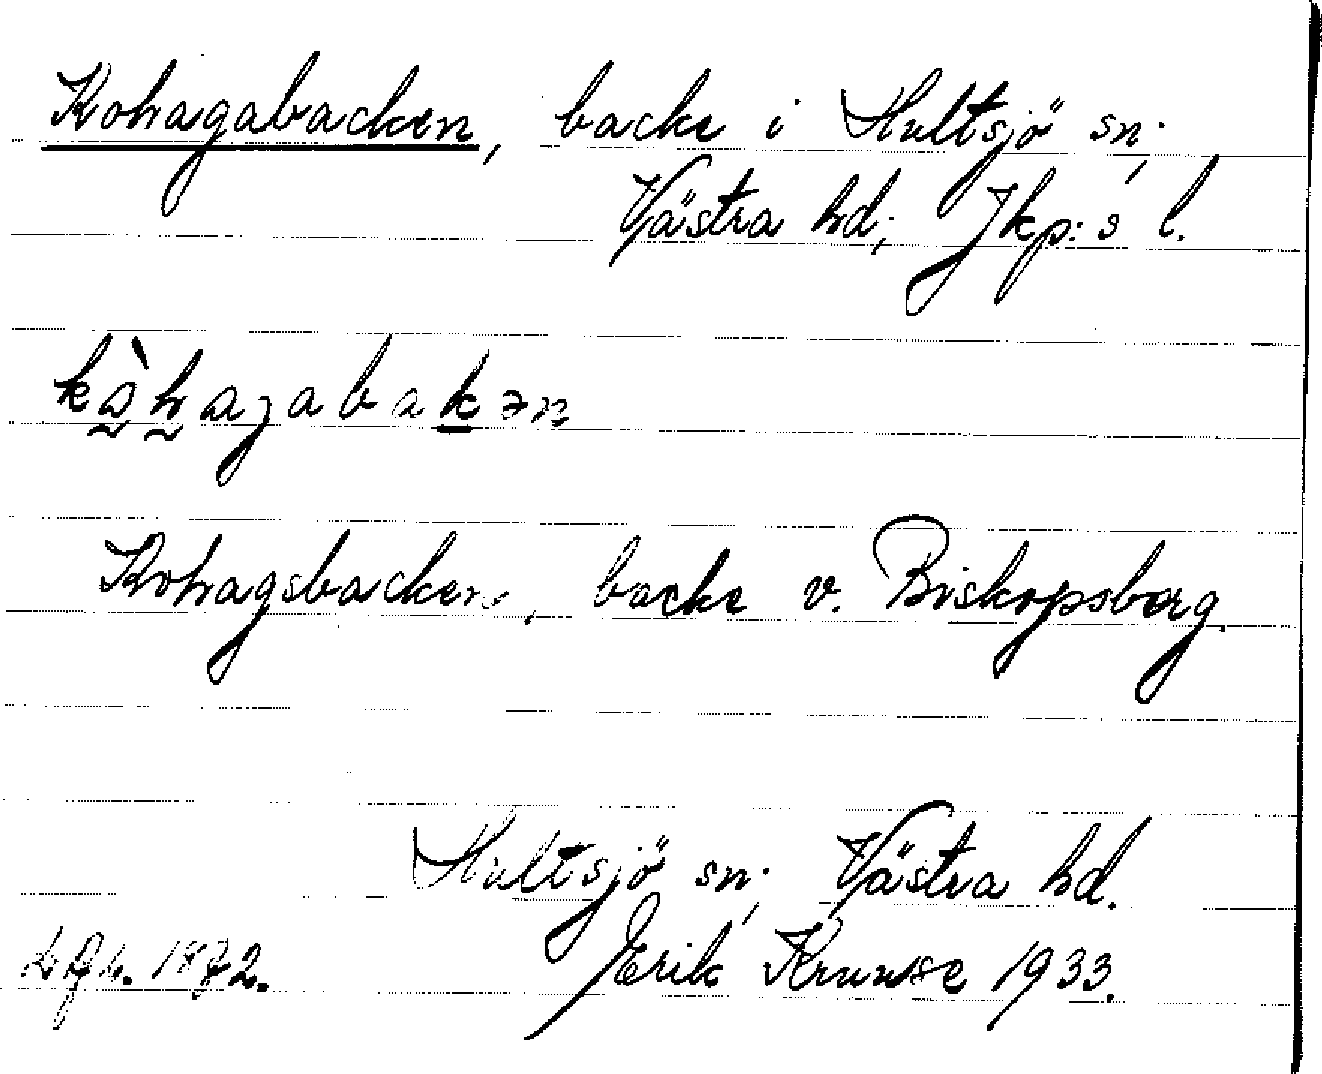 Kohagabacken, backe i Hultsjö sn;
Västra hd; Jkp:s l.
kὰhagabakən
Kohagsbacken, backe v. Biskopsberg.
Hultsjö sn; Västra hd.
Erik Kruuse 1933.
1872.